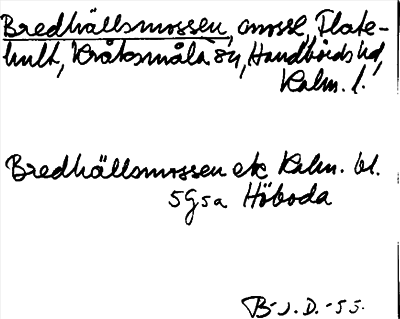 Bredhällsmossen, mosse, Flate-
hult, Kråksmåla sn, Handbörds hd,
Kalm. l.
Bredhällsmossen ek Kalm. bl.
5G5a Höboda
B-J.D.-55.